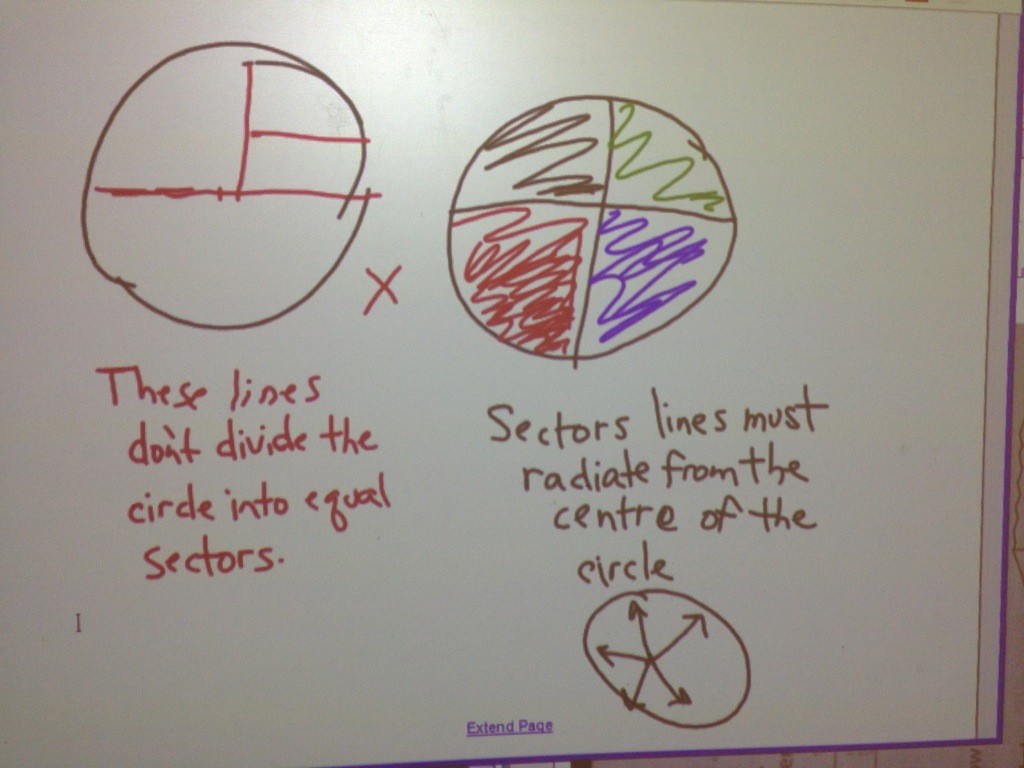 These lines
don't divide the
circle into equal
sectors.
Sectors lines must
radiate from the
centre of the
circle
Extend Page